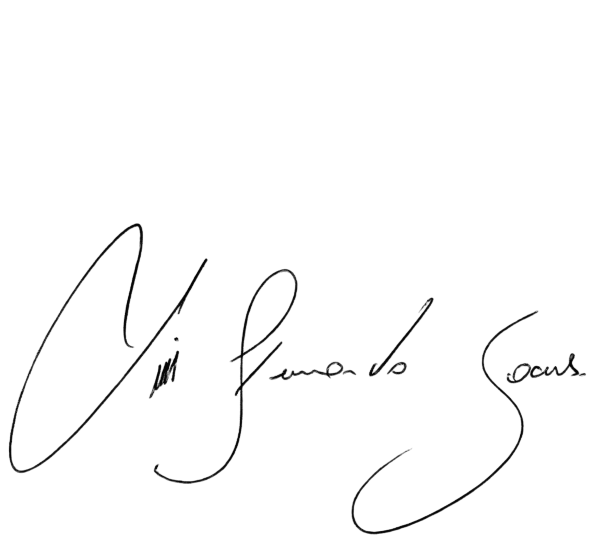 Fernando Soares